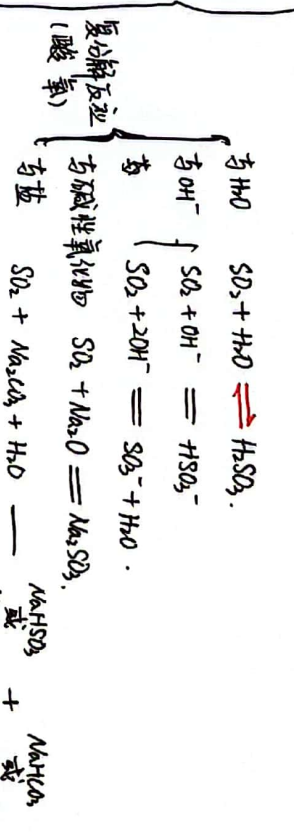 复分解反应
(酸氧)
与H₂O SO₂ + H₂O ⇌ H₂SO₃.
与OH⁻ { SO₂ + OH⁻ = HSO₃⁻
SO₂ + 2OH⁻ = SO₃⁻ + H₂O.
与碱性氧化物 SO₂ + Na₂O = Na₂SO₃.
与盐 SO₂ + Na₂CO₃ + H₂O — NaHSO₃ 或 + NaHCO₃ 或